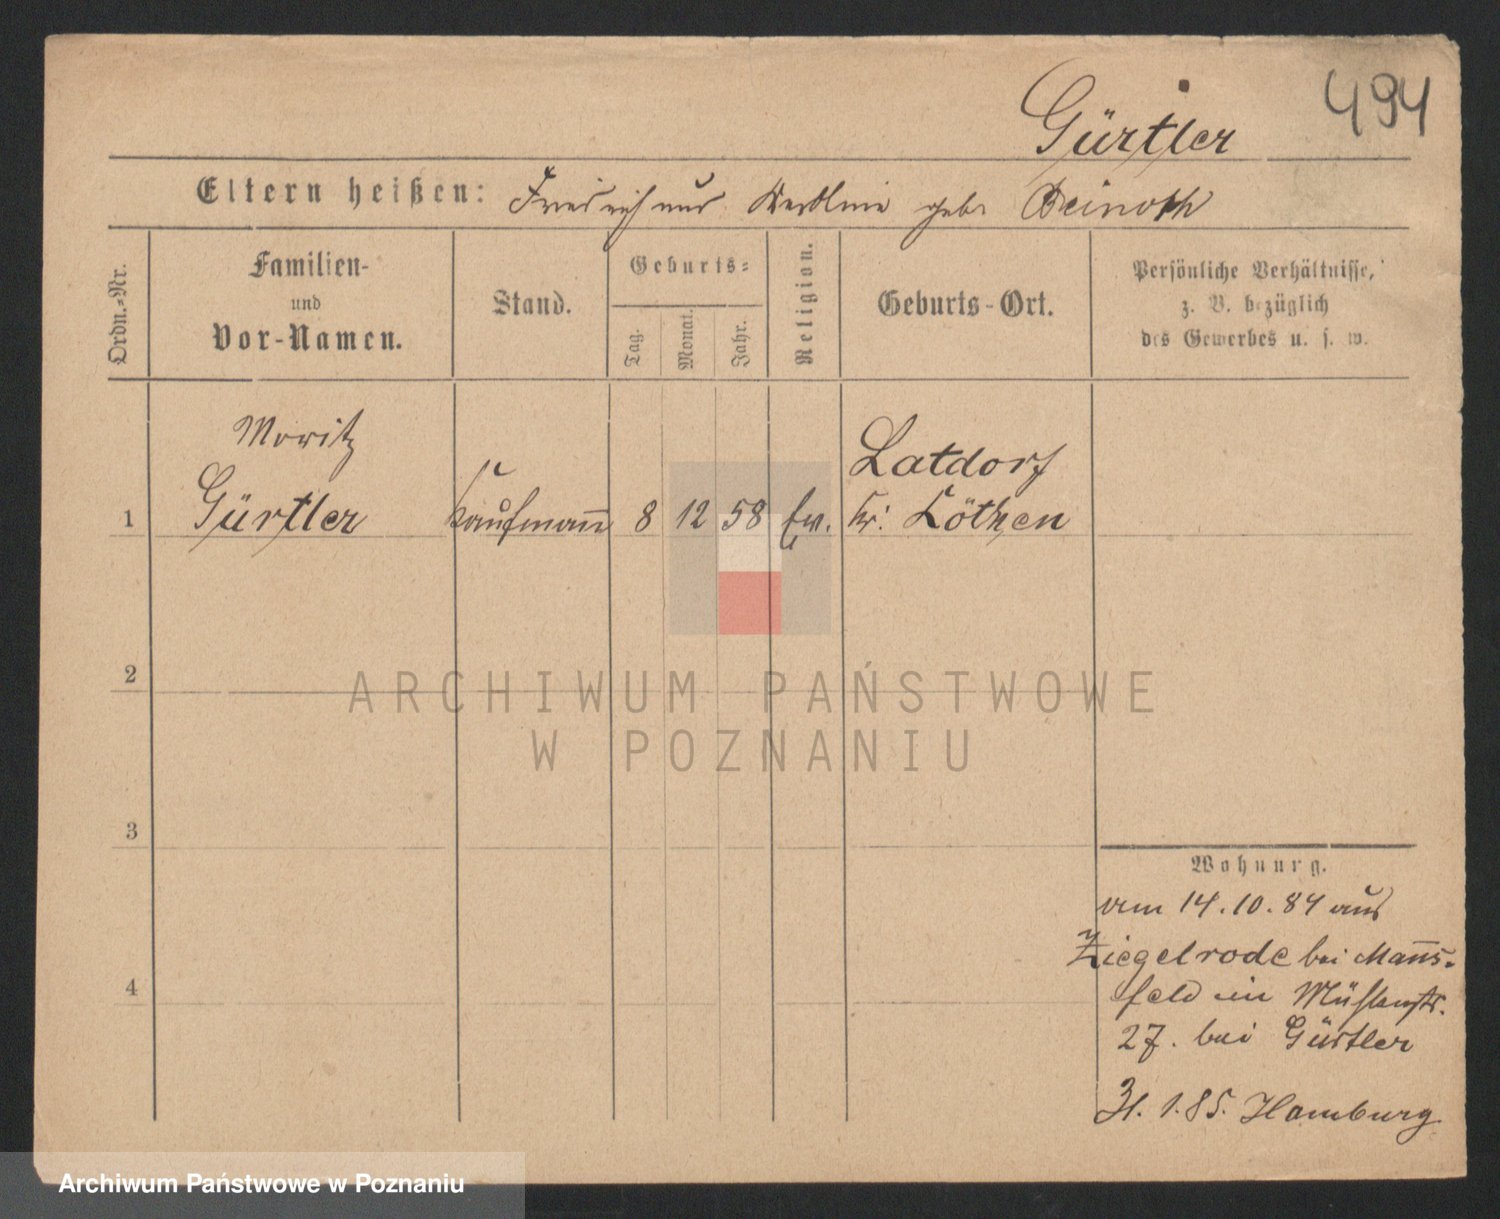 494
Gürtler
Eltern heißen: Friedrich und geb.
Ordn.-Nr.
Familien-
und
Vor-Namen.
Stand.
Geburts-
Tag.
Monat.
Jahr.
Religion.
Geburts-Ort.
Persönliche Verhältnisse,
z. B. bezüglich
des Gewerbes u. s. w.
Moritz
Latdorf
1 Gürtler Kaufmann 8 12 58 Ev. Kr. Köthen
2
3
4
Wohnung.
am 14.10.84 aus
Ziegelrode bei Manns-
feld in Mühlenstr.
27. bei Gürtler
31.1.85. Hamburg
ARCHIWUM PAŃSTWOWE
W POZNANIU
Archiwum Państwowe w Poznaniu